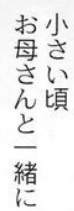 小さい頃
お母さんと一緒に